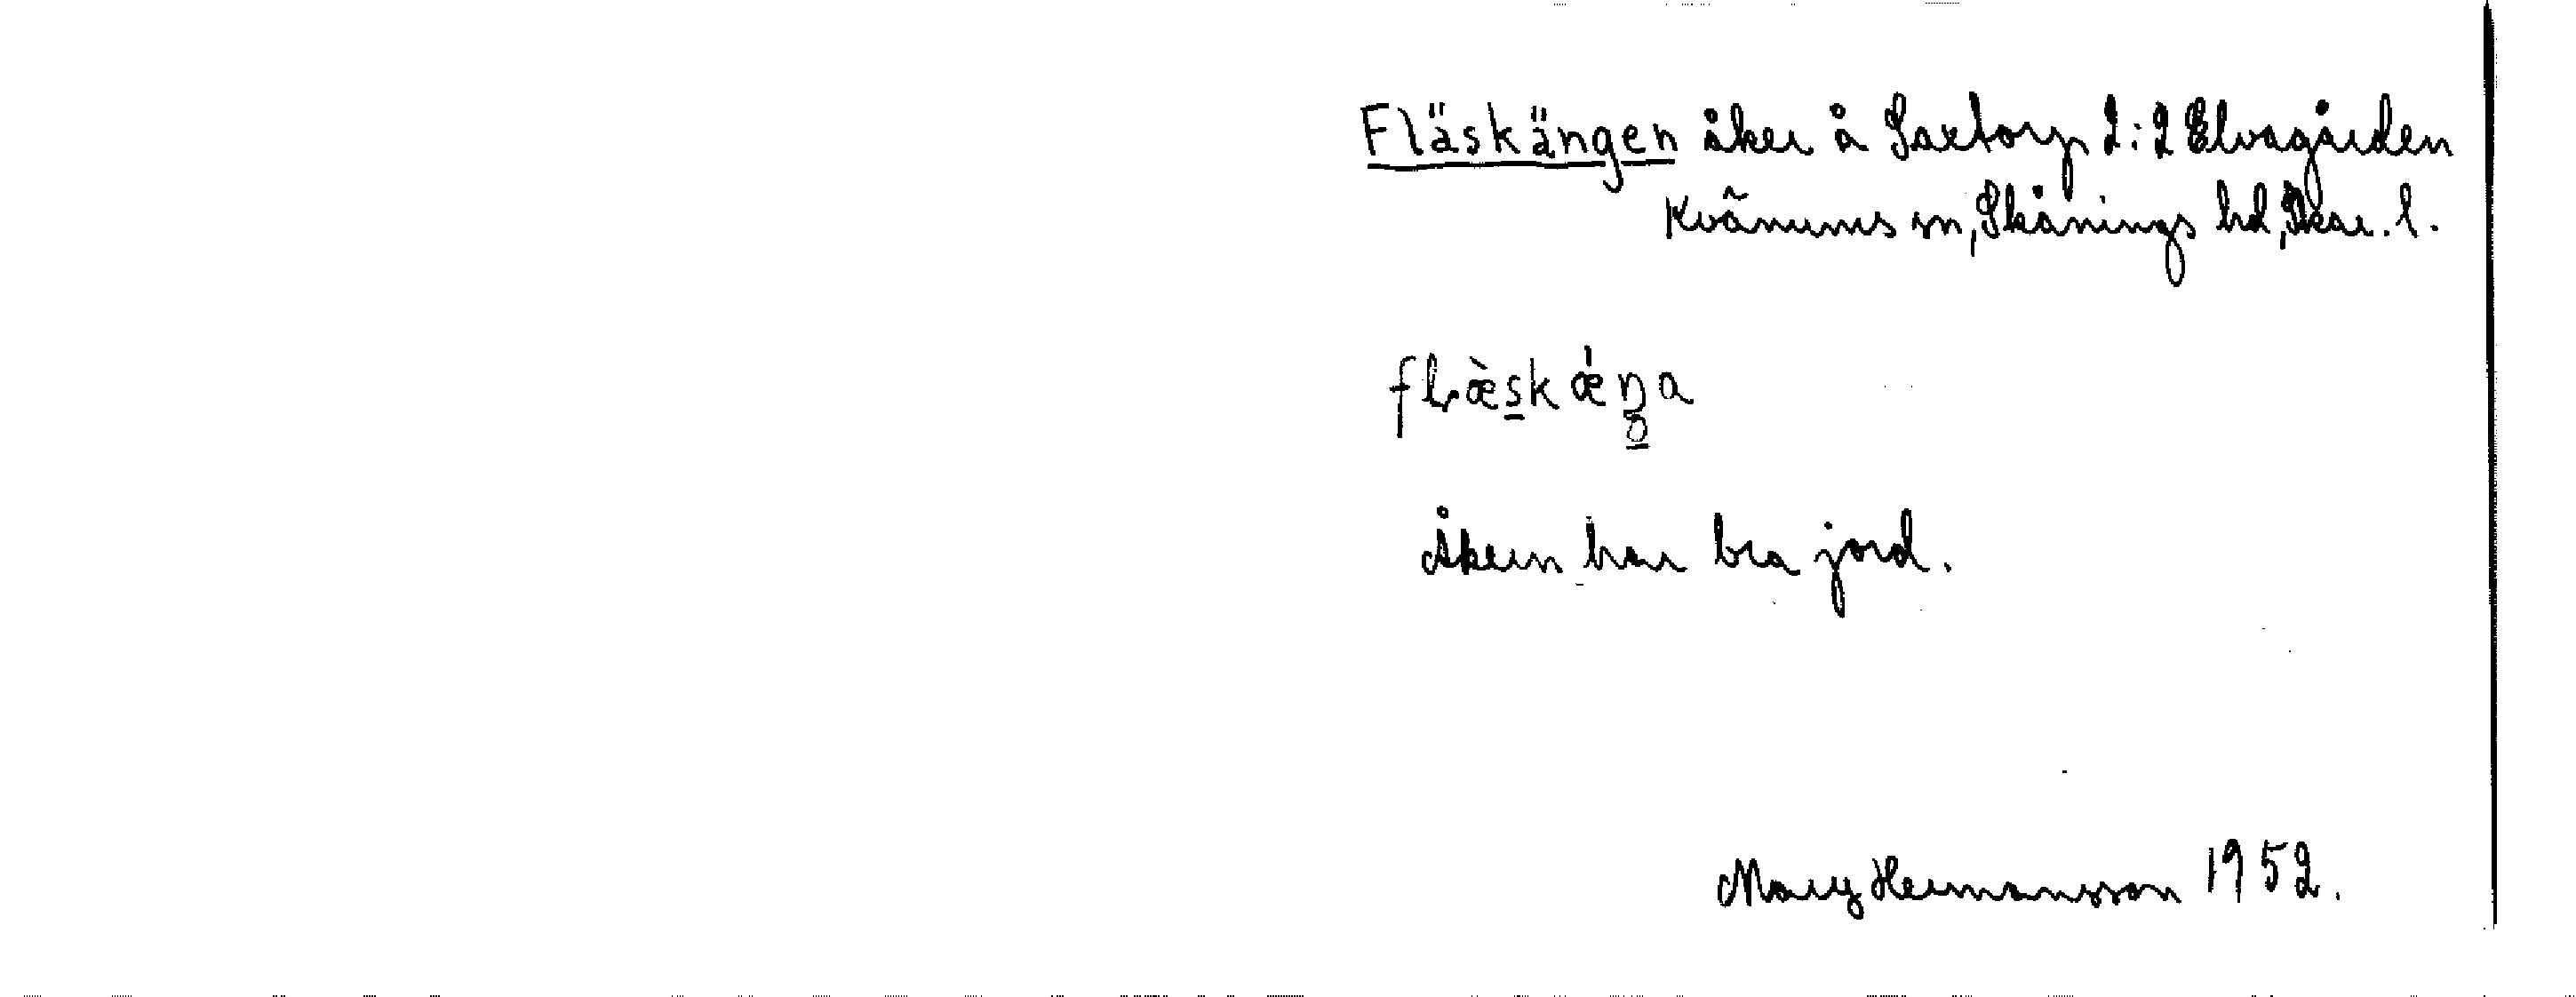 Fläskängen åker å Saxtorp 2:2 Elvagården
Kvänums sn, Skånings hd, Skar. l.
flæ̀skǽŋa
Åkern har bra jord.
Mary Hermansson 1952.